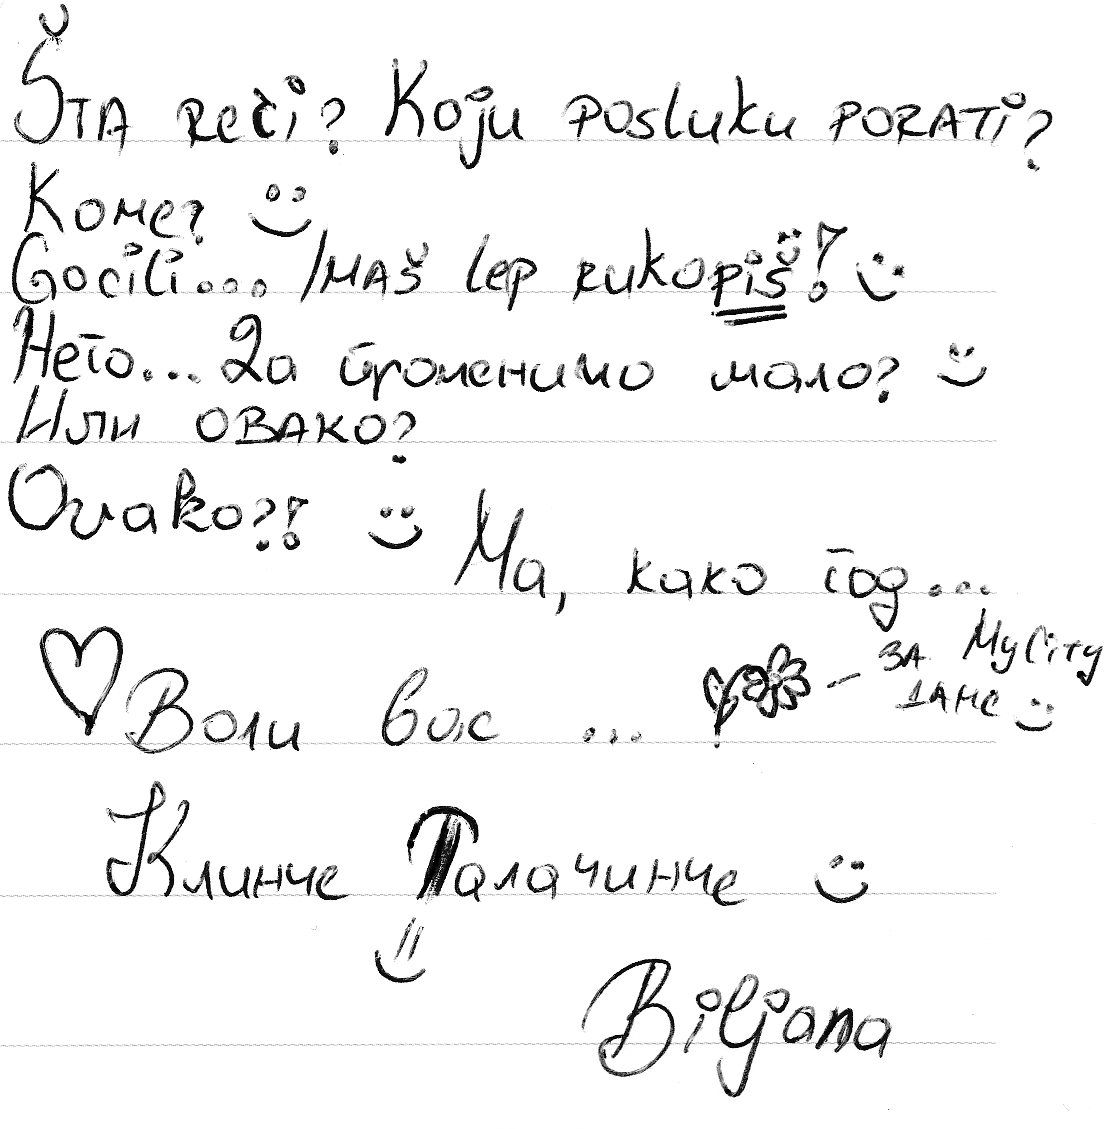 Šta reći? Koju posluku porati?
Коме?
Gocili... Imaš lep rukopiš!
Него... Да променимо мало?
Или овако?
Ovako?!
Ма, како год...
за MyCity
дане
Воли вас ...
Клинче Палачинче
Biljana